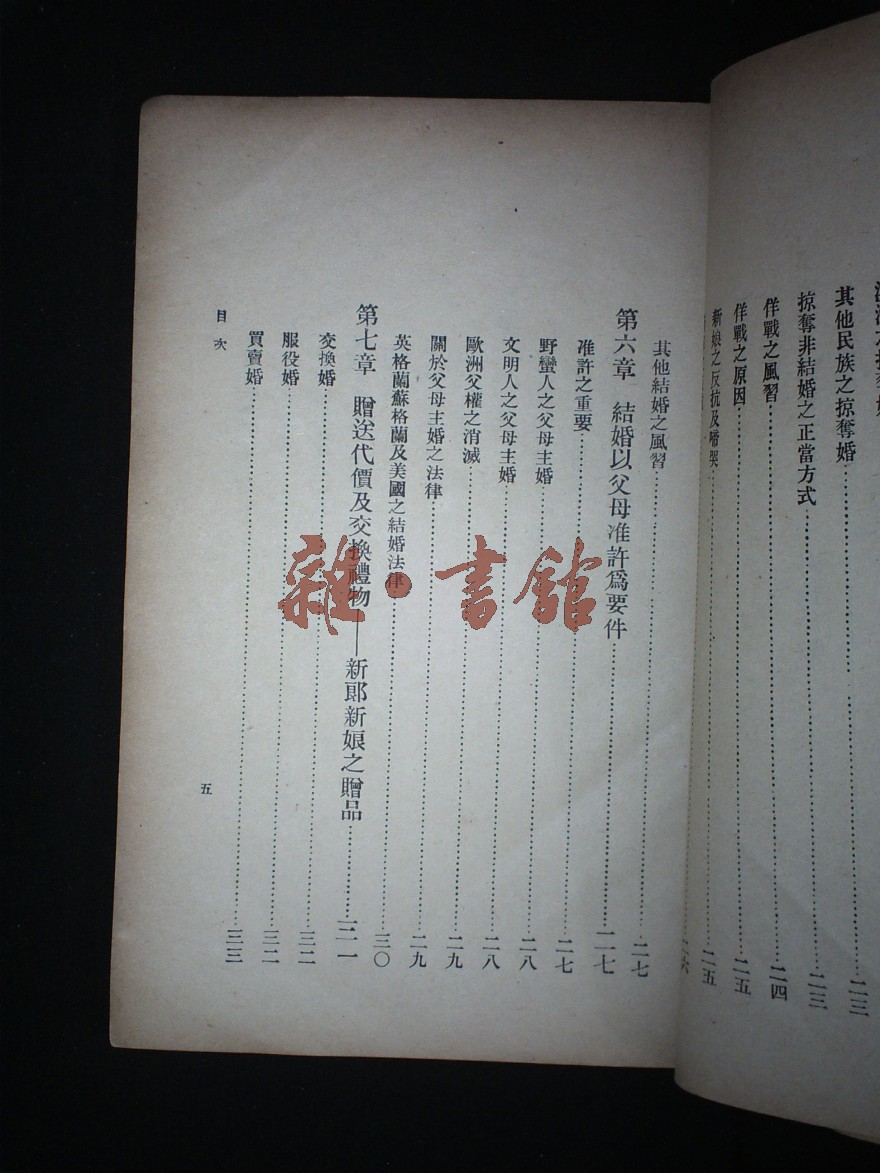 其他民族之掠奪婚 二三
掠奪非結婚之正當方式 二三
佯戰之風習 二四
佯戰之原因 二五
新娘之反抗及啼哭 二五
二六
其他結婚之風習 二七
第六章 結婚以父母准許爲要件 二七
准許之重要 二七
野蠻人之父母主婚 二八
文明人之父母主婚 二八
歐洲父權之消滅 二九
關於父母主婚之法律 二九
英格蘭蘇格蘭及美國之結婚法律 三〇
第七章 贈送代價及交換禮物——新郎新娘之贈品 三一
交換婚 三二
服役婚 三二
買賣婚 三三
目次
五
雜·書館